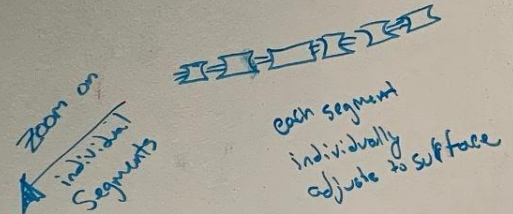 zoom on
individual
segments
each segment
individually
adjusts to surface